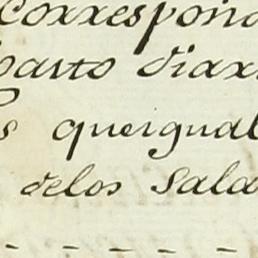 Correspond
parto diar
s queigual
delos Sala